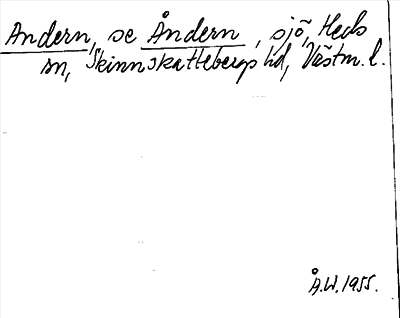 Andern, se Åndern, sjö, Heds
sn, Skinnskattebergs hd, Västm. l.
Å.W. 1955.